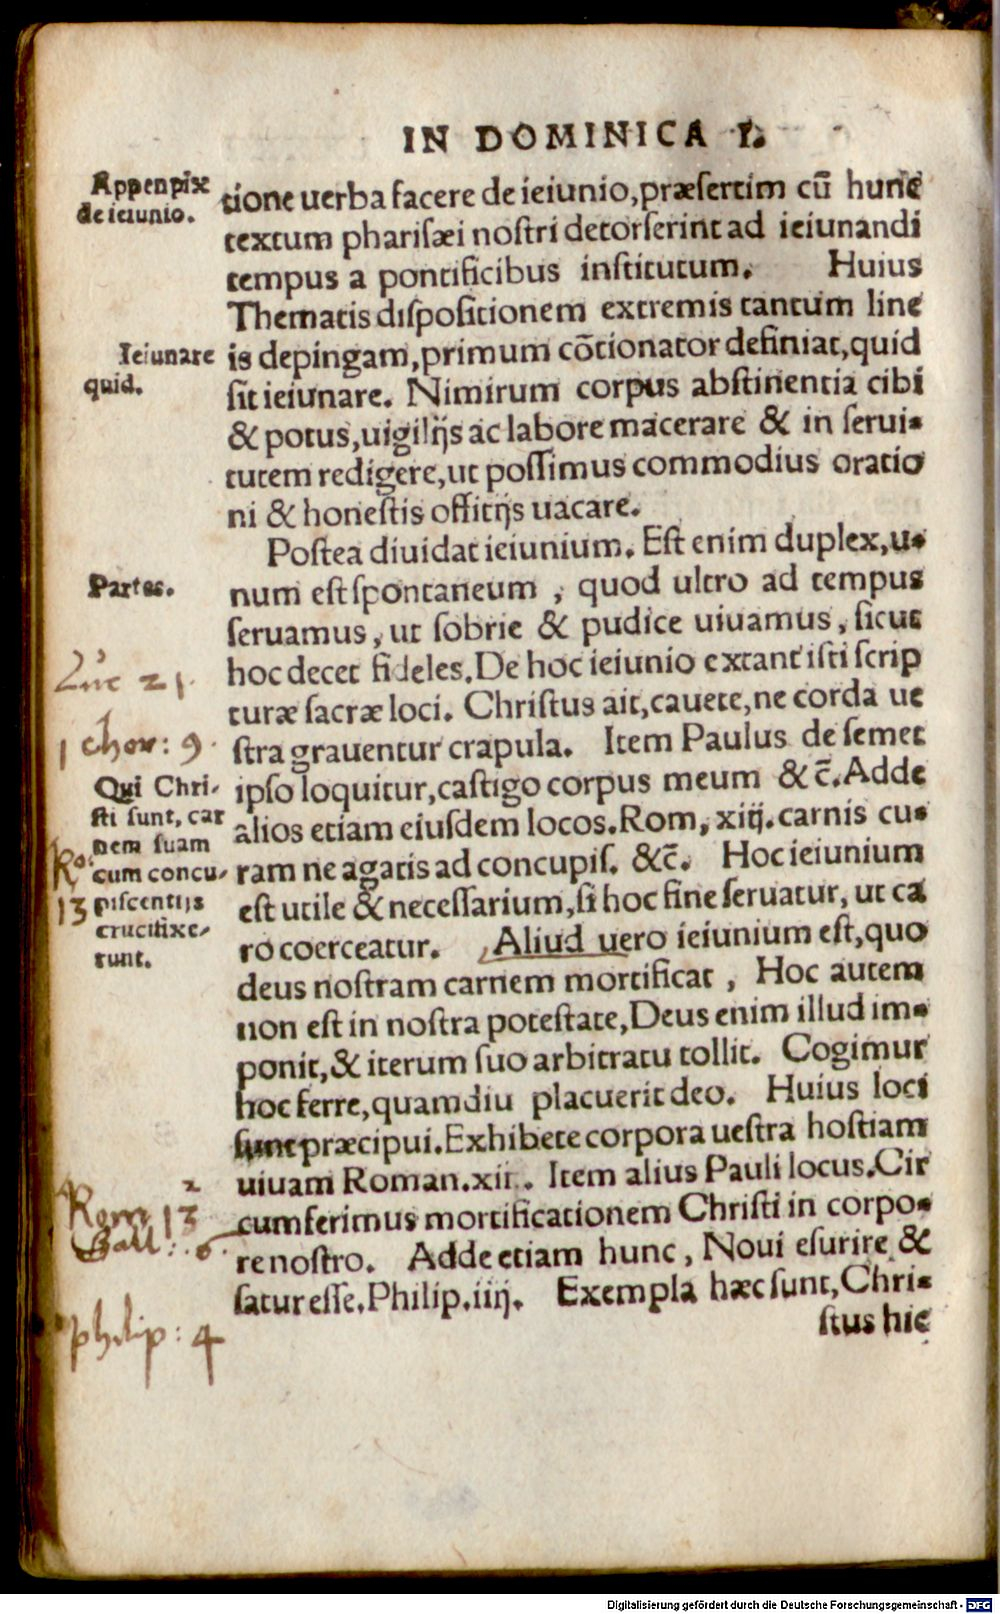 IN DOMINICA I.
Appenpix
de ieiunio.
tione uerba facere de ieiunio, præsertim cū hunc
textum pharisæi nostri detorserint ad ieiunandi
tempus a pontificibus institutum. Huius
Thematis dispositionem extremis tantum line
Ieiunare
quid.
is depingam, primum cōtionator definiat, quid
sit ieiunare. Nimirum corpus abstinentia cibi
& potus, uigilijs ac labore macerare & in serui-
tutem redigere, ut possimus commodius oratio
ni & honestis officijs uacare.
Postea diuidat ieiunium. Est enim duplex, u-
Partes.
num est spontaneum, quod ultro ad tempus
seruamus, ut sobrie & pudice uiuamus, sicut
hoc decet fideles. De hoc ieiunio extant isti scrip
Luc 21.
turæ sacræ loci. Christus ait, cauete, ne corda ue
1 Chor: 9.
stra grauentur crapula. Item Paulus de semet
Qui Chri-
sti sunt, car
nem suam
cum concu-
piscentijs
crucifixe-
runt.
Ro:
13
ipso loquitur, castigo corpus meum &c̄. Adde
alios etiam eiusdem locos. Rom, xiij. carnis cu-
ram ne agatis ad concupis. &c̄. Hoc ieiunium
est utile & necessarium, si hoc fine seruatur, ut ca
ro coerceatur. Aliud uero ieiunium est, quo
deus nostram carnem mortificat, Hoc autem
non est in nostra potestate, Deus enim illud im-
ponit, & iterum suo arbitratu tollit. Cogimur
hoc ferre, quamdiu placuerit deo. Huius loci
sunt præcipui. Exhibete corpora uestra hostiam
uiuam Roman. xii. Item alius Pauli locus. Cir
Rom 13
2
Gall: 6.
cumferimus mortificationem Christi in corpo-
re nostro. Adde etiam hunc, Noui esurire &
satur esse. Philip. iiij. Exempla hæc sunt, Chri-
philip: 4
stus hic
Digitalisierung gefördert durch die Deutsche Forschungsgemeinschaft - DFG